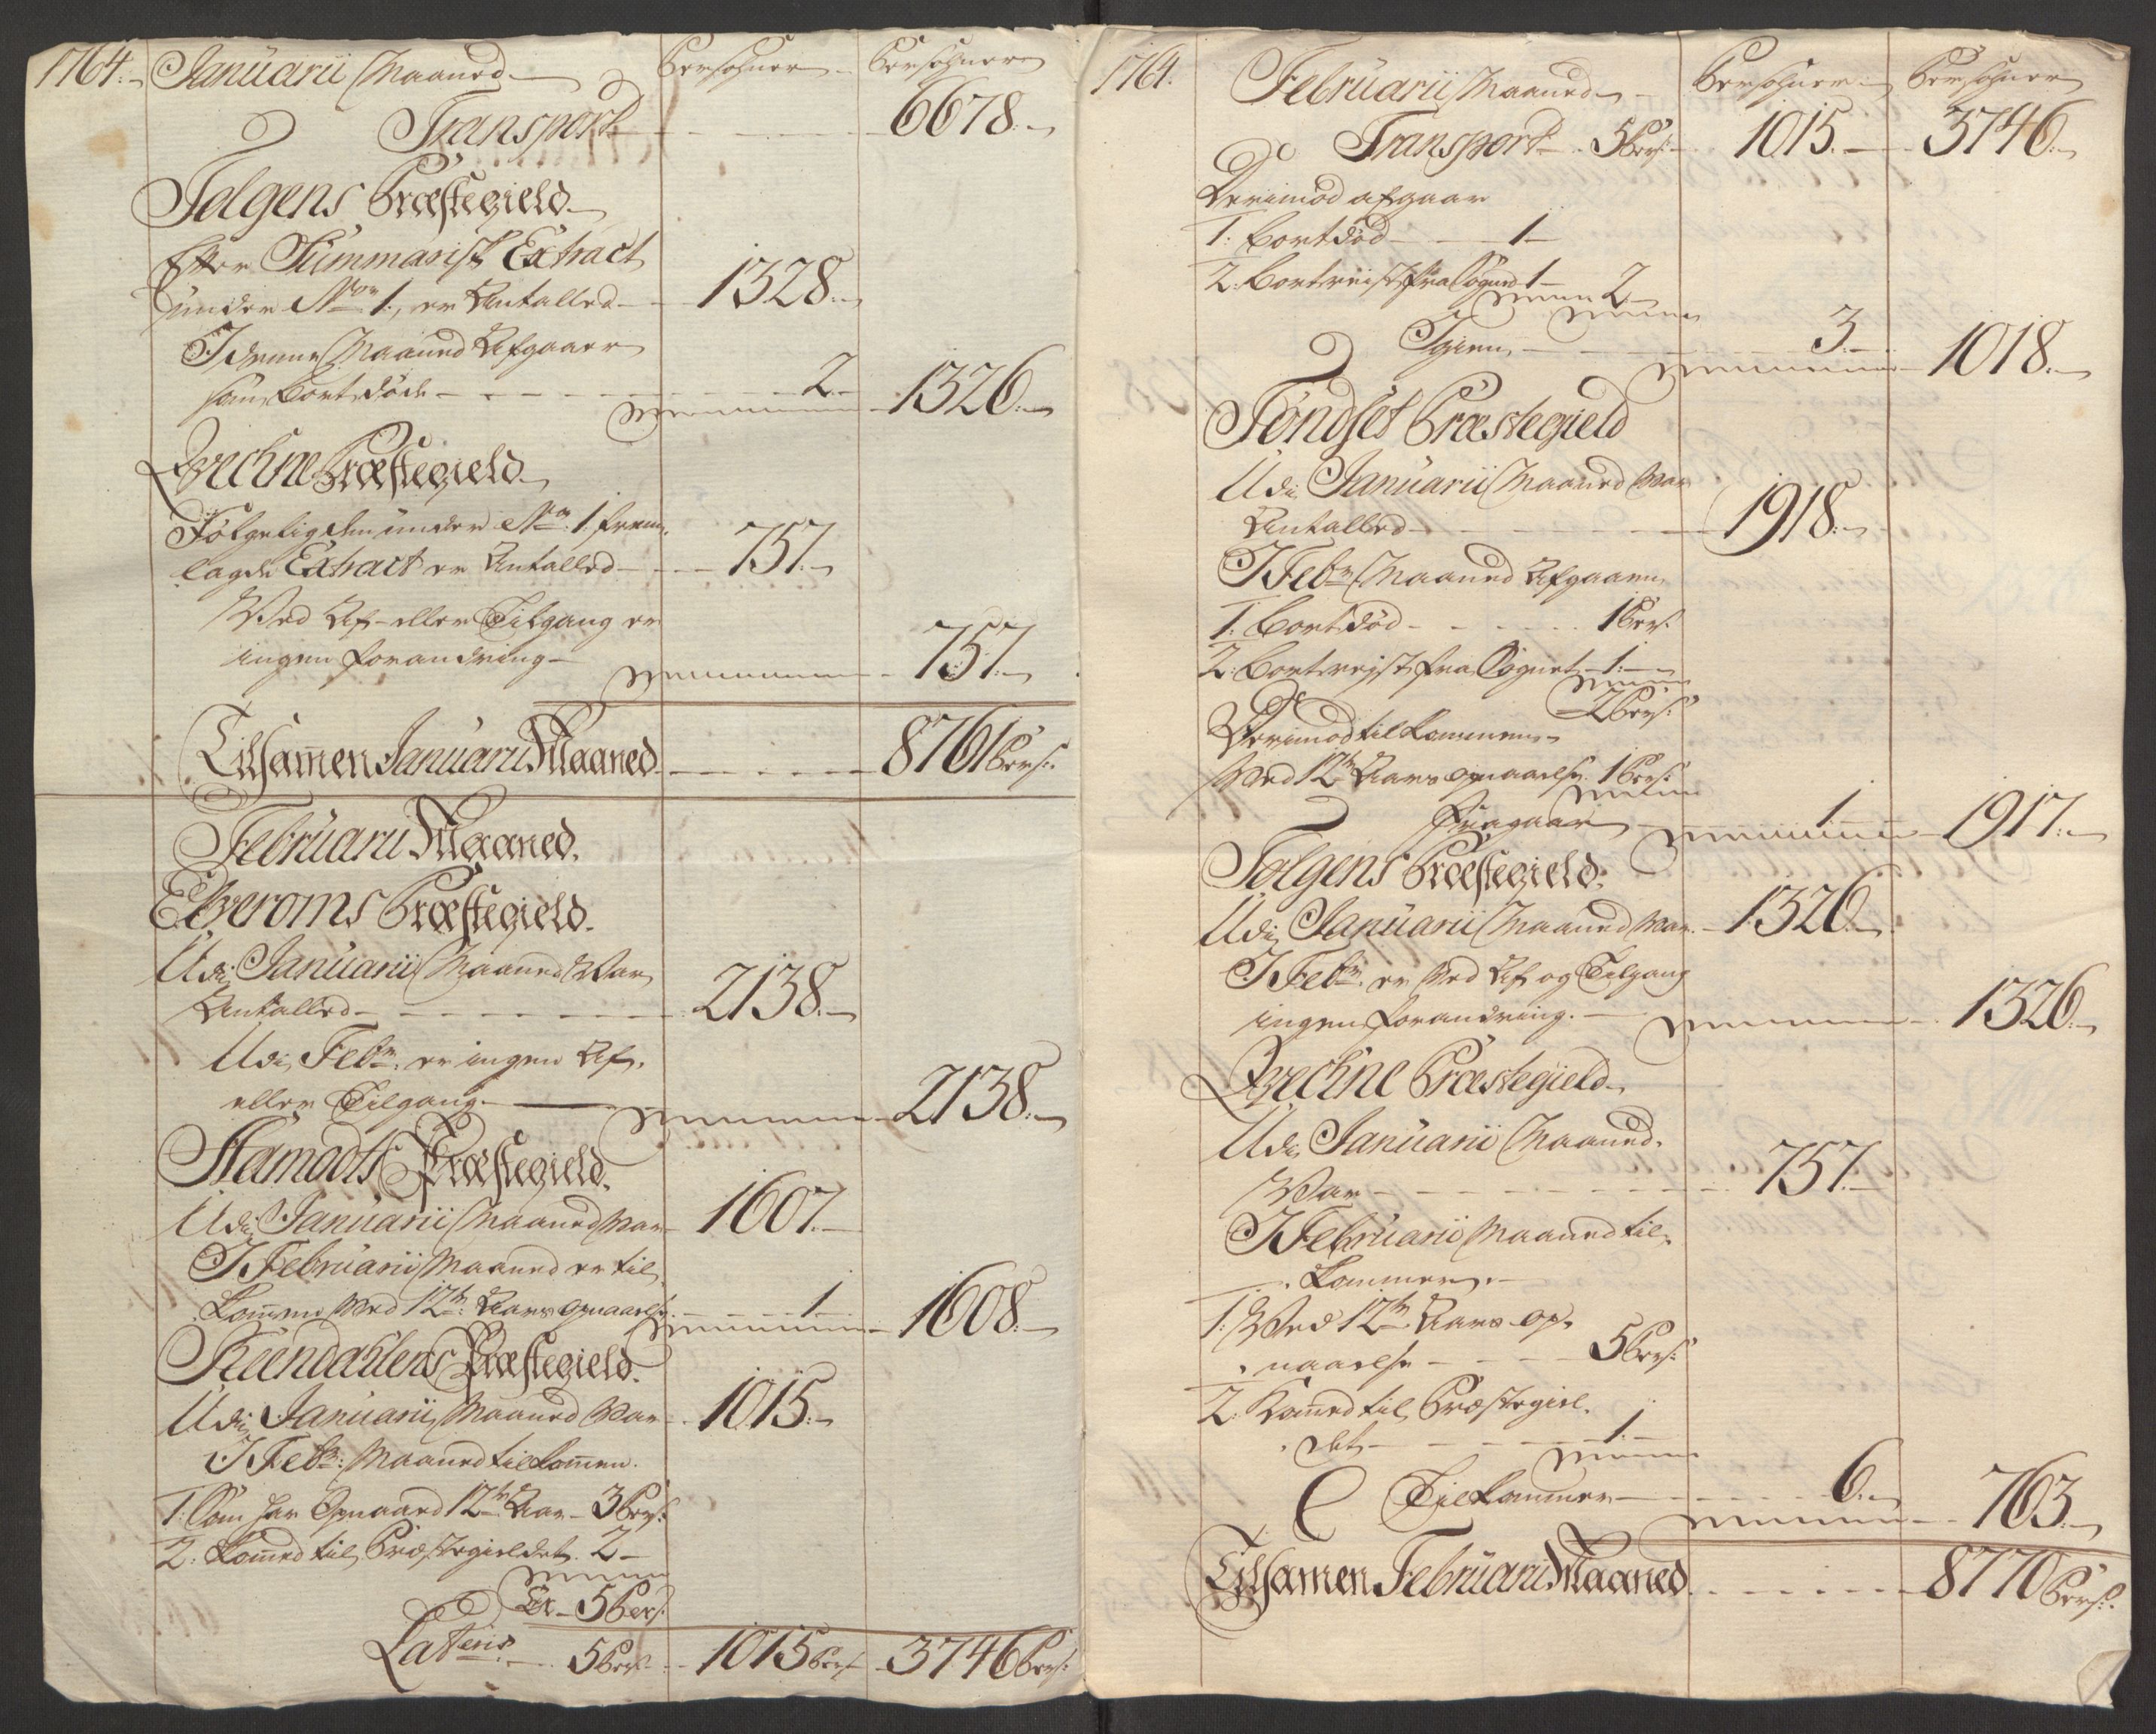 1764. Januarii Maaned Persohner Persohner
Transport 6678.
Tolgens Præstegield
Efter Summarisk Extract
under No. 1., er Antalled 1328.
I denne Maaned Afgaaer
som bortdøde 2. 1326.
Qvechne Præstegield
Følgelig den under No. 1. frem-
lagde Extract er Antalled 757.
Ved Af- eller Tilgang er
ingen forandring 757.
Tilsamen Januarii Maaned 8761 Pers:
Februarii Maaned.
Elveroms Præstegield.
Udi Januarii Maaned Var
Antalled 2138.
Udi Febr. er ingen Af-
eller Tilgang 2138.
Aamodts Præstegield.
Udi Januarii Maaned Var 1607.
I Februarii Maaned er til-
kommen Ved 12te Aars opnaaelse 1 1608.
Reendahlens Præstegield.
Udi Januarii Maaned Var 1015.
I Febr: Maaned tilkommen.
1: Som har Opnaaed 12te Aar 3 Pers:
2: Kommed til Præstegieldet. 2
Er 5 Pers:
Lateris 5 Pers: 1015 Pers: 3746 Pers:
1764. Februarii Maaned Persohner Persohner
Transport 5 Pers: 1015. 3746.
Derimod afgaar
1: bortdød 1
2: bortreist fra Sognet 1
2
Igien 3. 1018.
Tøndset Præstegield
Udi Januarii Maaned Var
Antalled 1918.
I Febr Maaned Afgaaen
1: Bortdød 1 Pers:
2: Bortrejst fra Sognet 1.
2 Pers:
Derimod tilkommen
Ved 12te Aars opnaaelse. 1 Pers:
fragaar 1 1917.
Tolgens Præstegield.
Udi Januarii Maaned Var 1326.
I Febr. er Ved Af og Tilgang
ingen forandring. 1326.
Qvechne Præstegield
Udi Januarii Maaned
Var 757.
I Februarii Maaned til-
kommen
1: Ved 12te Aars op-
naaelse 5 Pers:
2: Kommed til Præstegiel-
det 1.
Tilkommer 6. 763.
Tilsamen Februarii Maaned 8770 Pers: